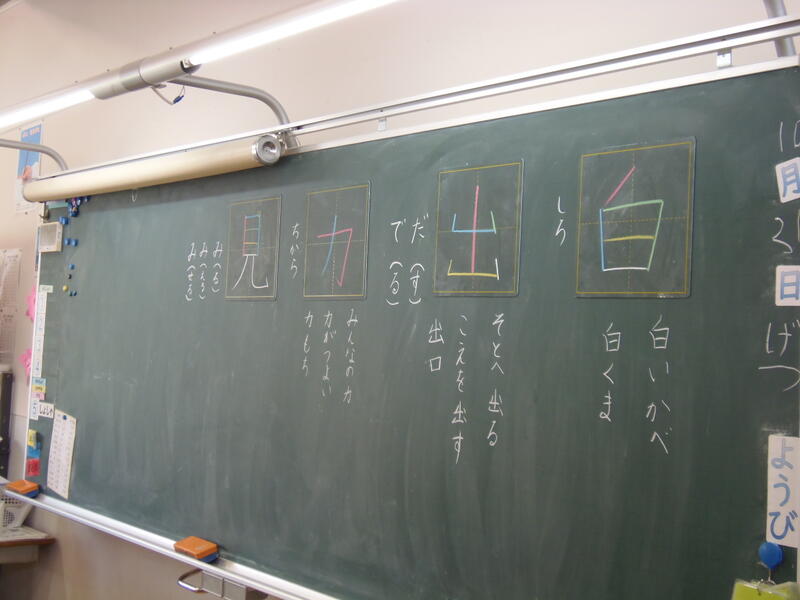 10
月
31
日
げつ
ようび
白
しろ
白いかべ
白くま
出
だ(す)
で(る)
そとへ出る
こえを出す
出口
力
ちから
みんなの力
力がつよい
力もち
見
み(る)
み(える)
み(せる)